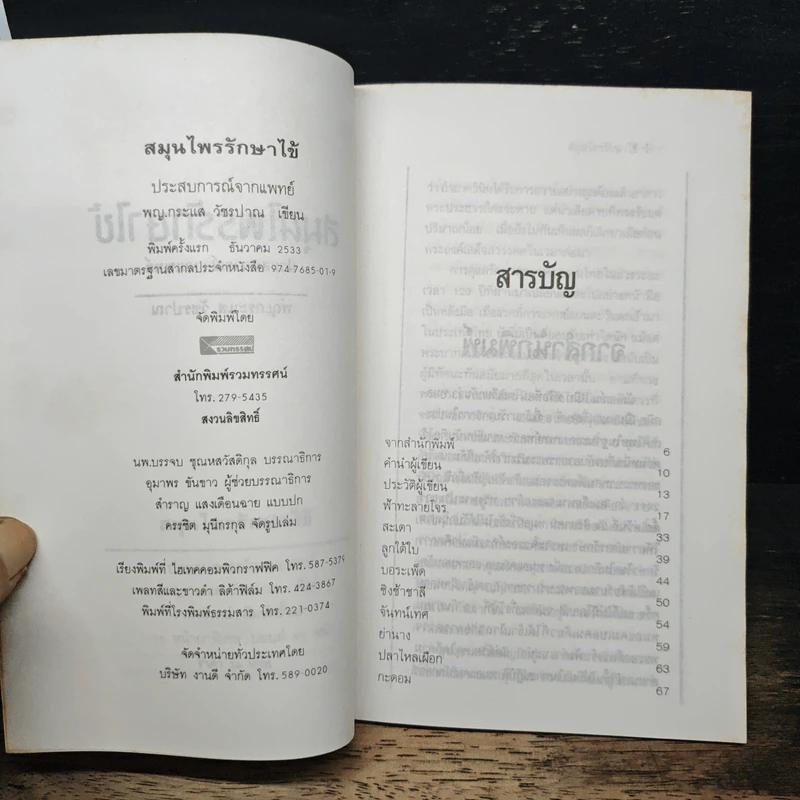 สมุนไพรรักษาไข้
ประสบการณ์จากแพทย์
พญ.กระแส วัชรปาณ เขียน
พิมพ์ครั้งแรก ธันวาคม 2533
เลขมาตรฐานสากลประจำหนังสือ 974-7685-01-9
จัดพิมพ์โดย
รวมทรรศน์
สำนักพิมพ์รวมทรรศน์
โทร. 279-5435
สงวนลิขสิทธิ์
นพ.บรรจบ ชุณหสวัสดิกุล บรรณาธิการ
อุมาพร ขันขาว ผู้ช่วยบรรณาธิการ
สำราญ แสงเดือนฉาย แบบปก
ครรชิต มุนีกรกุล จัดรูปเล่ม
เรียงพิมพ์ที่ ไฮเทคคอมพิวกราฟฟิค โทร. 587-5379
เพลทสีและขาวดำ ลิต้าฟิล์ม โทร. 424-3867
พิมพ์ที่โรงพิมพ์ธรรมสาร โทร. 221-0374
จัดจำหน่ายทั่วประเทศโดย
บริษัท งานดี จำกัด โทร. 589-0020
สารบัญ
จากสำนักพิมพ์ 6
คำนำผู้เขียน 10
ประวัติผู้เขียน 13
ฟ้าทะลายโจร 17
สะเดา 33
ลูกใต้ใบ 39
บอระเพ็ด 44
ชิงช้าชาลี 50
จันทน์เทศ 54
ย่านาง 59
ปลาไหลเผือก 63
กะดอม 67